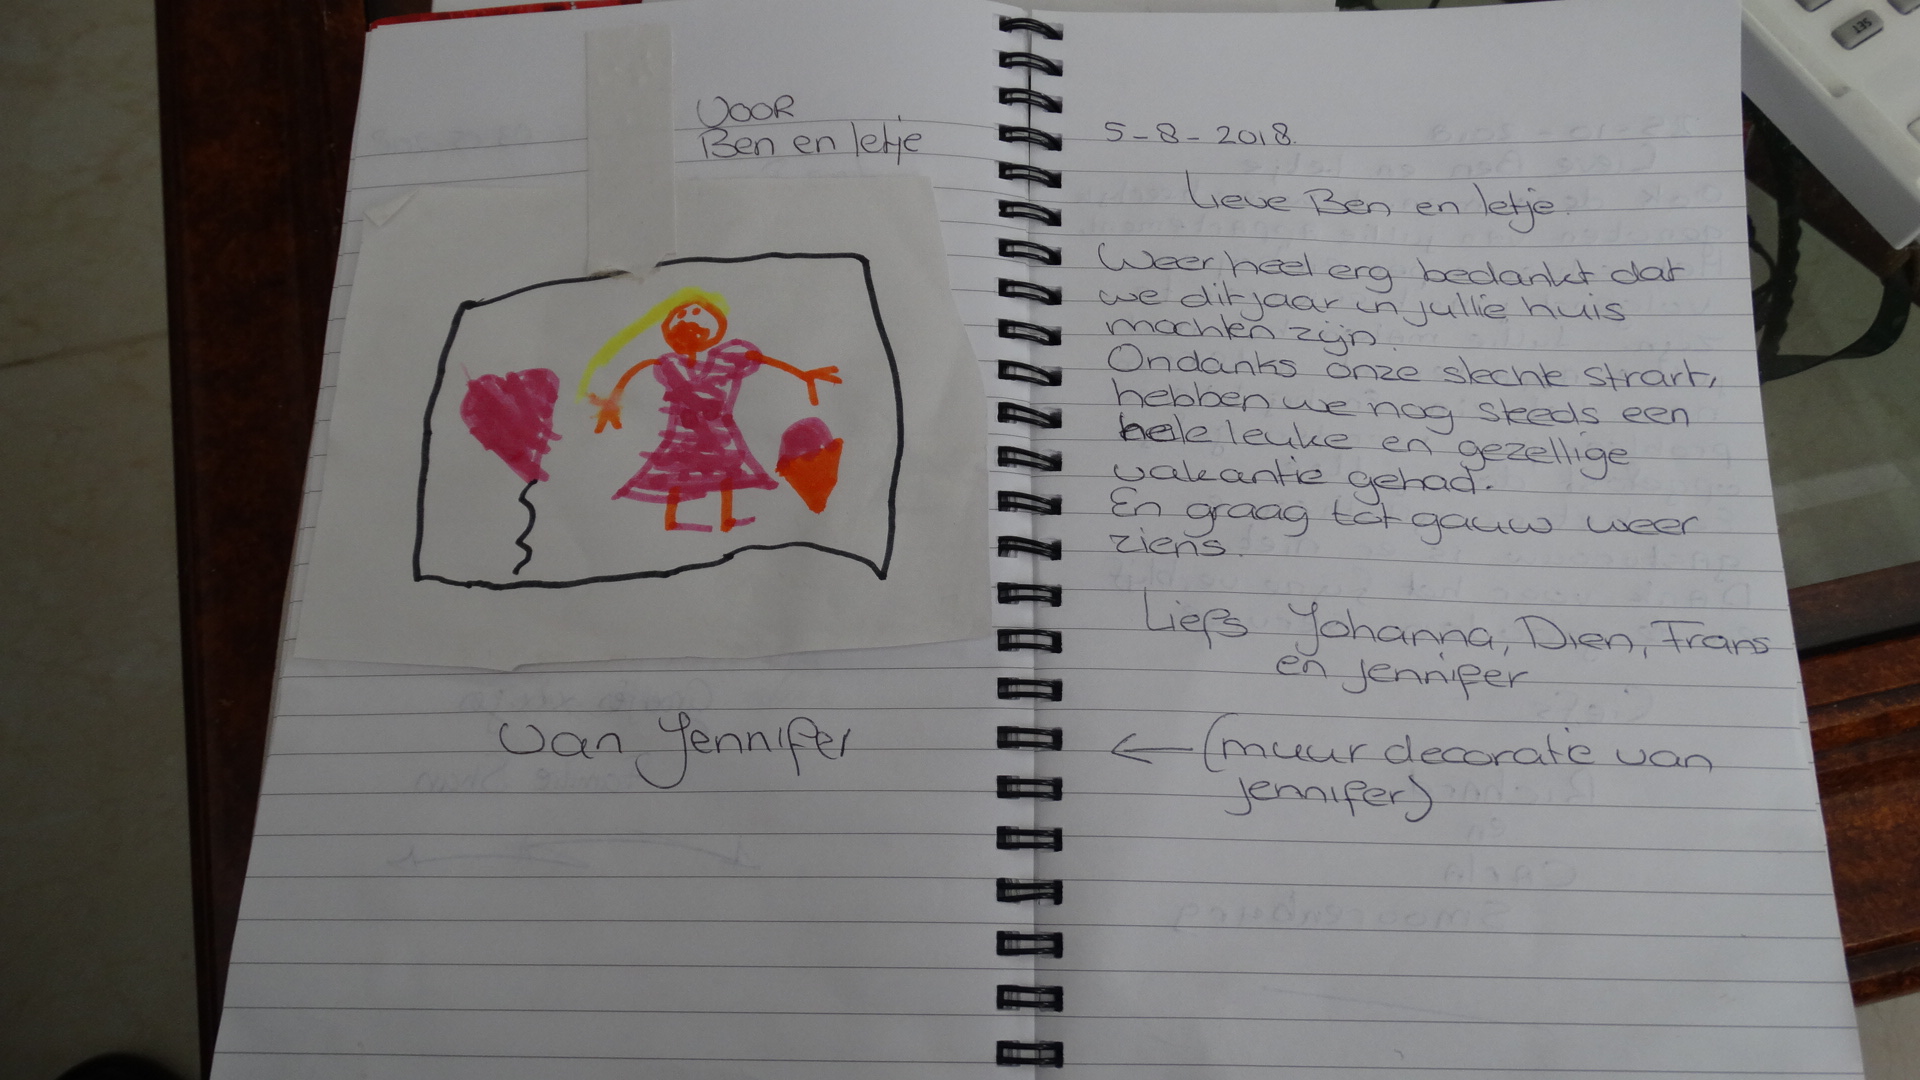 VOOR
Ben en Ietje
Van Jennifer
5-8-2018.
Lieve Ben en Ietje.
Weer heel erg bedankt dat
we dit jaar in jullie huis
mochten zijn.
Ondanks onze slechte strart,
hebben we nog steeds een
hele leuke en gezellige
vakantie gehad.
En graag tot gauw weer
ziens.
Liefs Johanna, Dien, Frans
en Jennifer
← (muur decoratie van
Jennifer)
SET